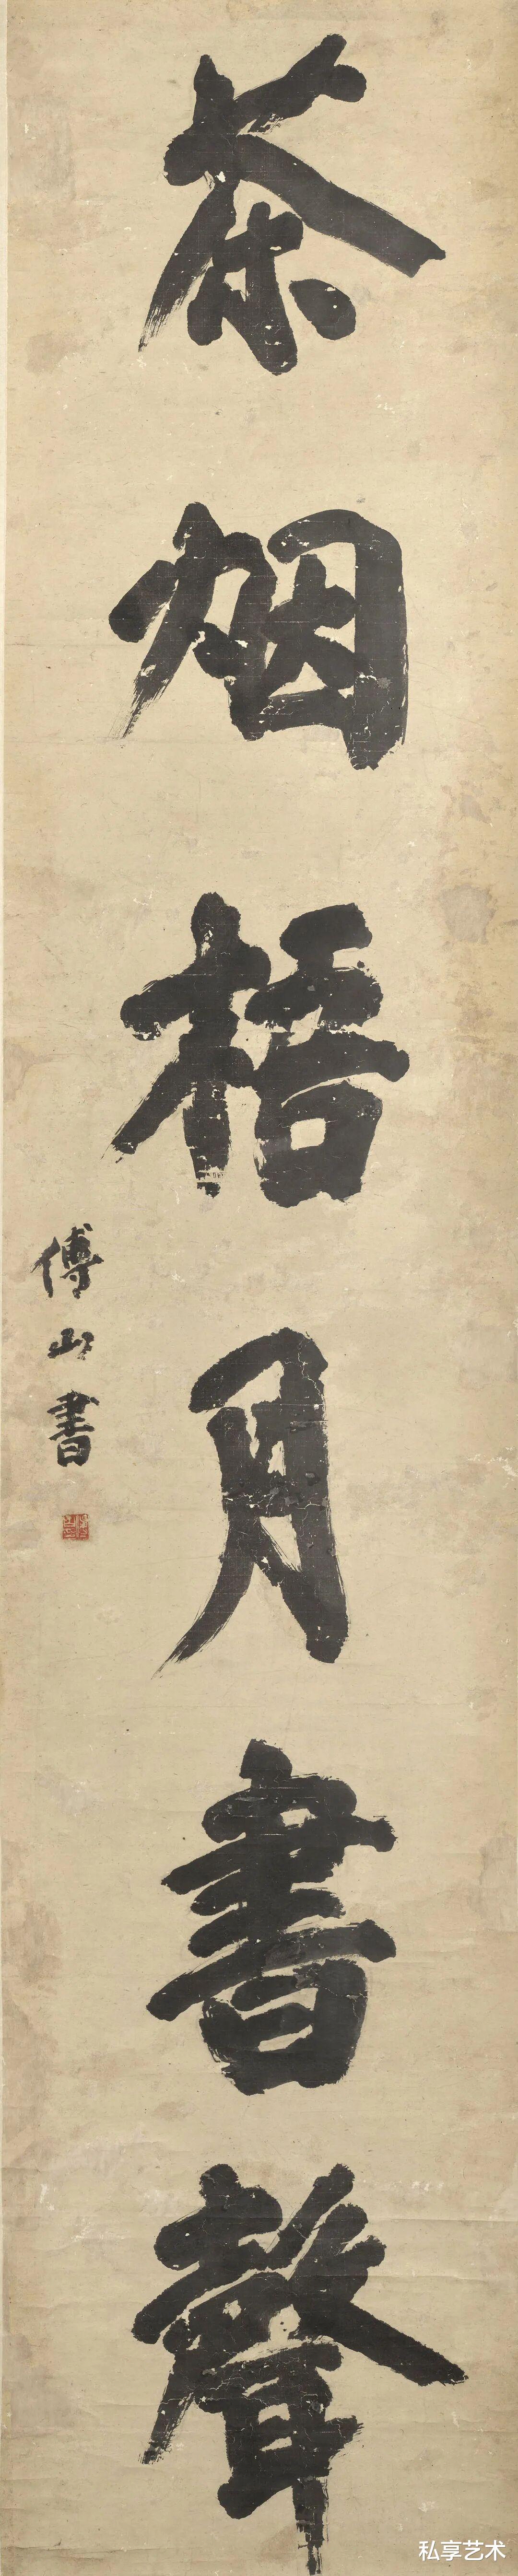 茶烟梧月書聲
傅山書
私享艺术